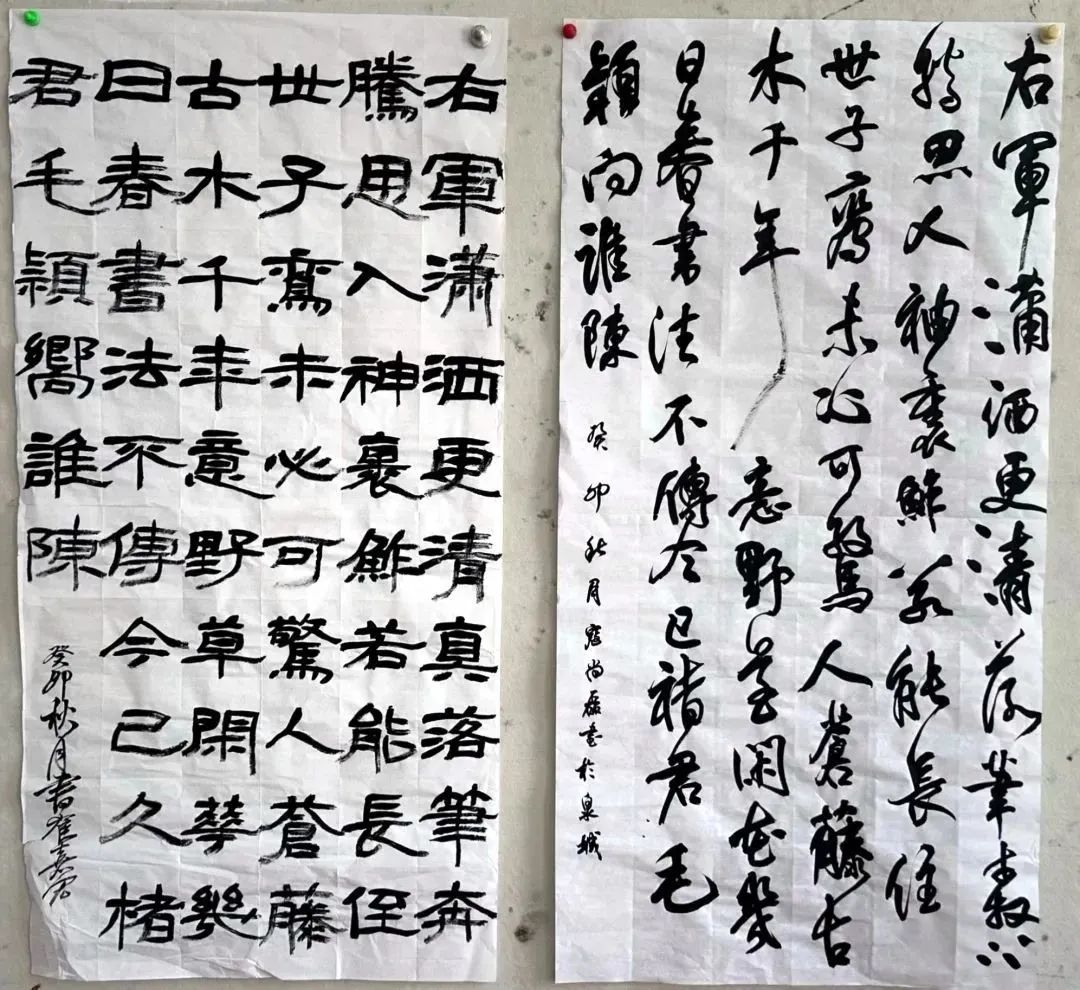 右軍瀟洒更清真落筆奔
騰思入神裏鮓若能長住
世子鸞未必可驚人蒼藤
古木千年意野草閑華幾
日春書法不傳今已久楮
君毛穎嚮誰陳
癸卯秋月書
右軍瀟洒更清落筆奔
騰思入神裹鮓若能長住
世子鸞未必可驚人蒼藤古
木千年意野草閑花幾
日春書法不傳今已楮君毛
穎向誰陳
癸卯秋月寇尚磊書於泉城